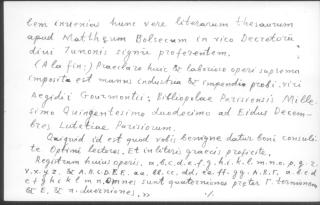 bem invenies hunc vere literarum thesaurum
apud Matthęum Bolsecum in vico Decretorū
divi Junonis signū proferentem.
(A la fin:) Praeclaro huic & laborioso operi suprema
imposita est manus industria & impendio probi viri
Aegidii Gourmontii: Bibliopolae Parisiensis Mille-
simo Quingentesimo duodecimo ad Eidus Decem-
bres Lutetiae Parisiorum.
Quiquid id est quod volis benigne datur boni consuli-
te Optimi Lectores. Et in literis graecis proficite.
Registrum huius operis, a.b.c.d.e.f.g.h.i.k.l.m.n.o.p.q.r.
v.x.y.z. & A.B.C.D.E.F. aa. bb. cc. dd. ee. ff. gg. A.B.Γ. a.b.c.d
e f g h i k l m n. Omnes sunt quaterniones preter Γ. ternionem
& E, & a. duerniones.»